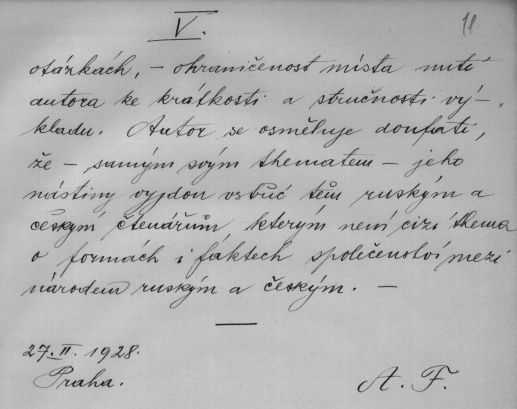 V.
11
otázkách, – ohraničenost místa nutí
autora ke krátkosti a stručnosti vý-
kladu. Autor se osměluje doufati,
že – samým svým thematem – jeho
nástiny vyjdou vstříc těm ruským a
českým čtenářům, kterým není cizí thema
o formách i faktech společenství mezi
národem ruským a českým. –
27. II. 1928.
Praha.
A. F.